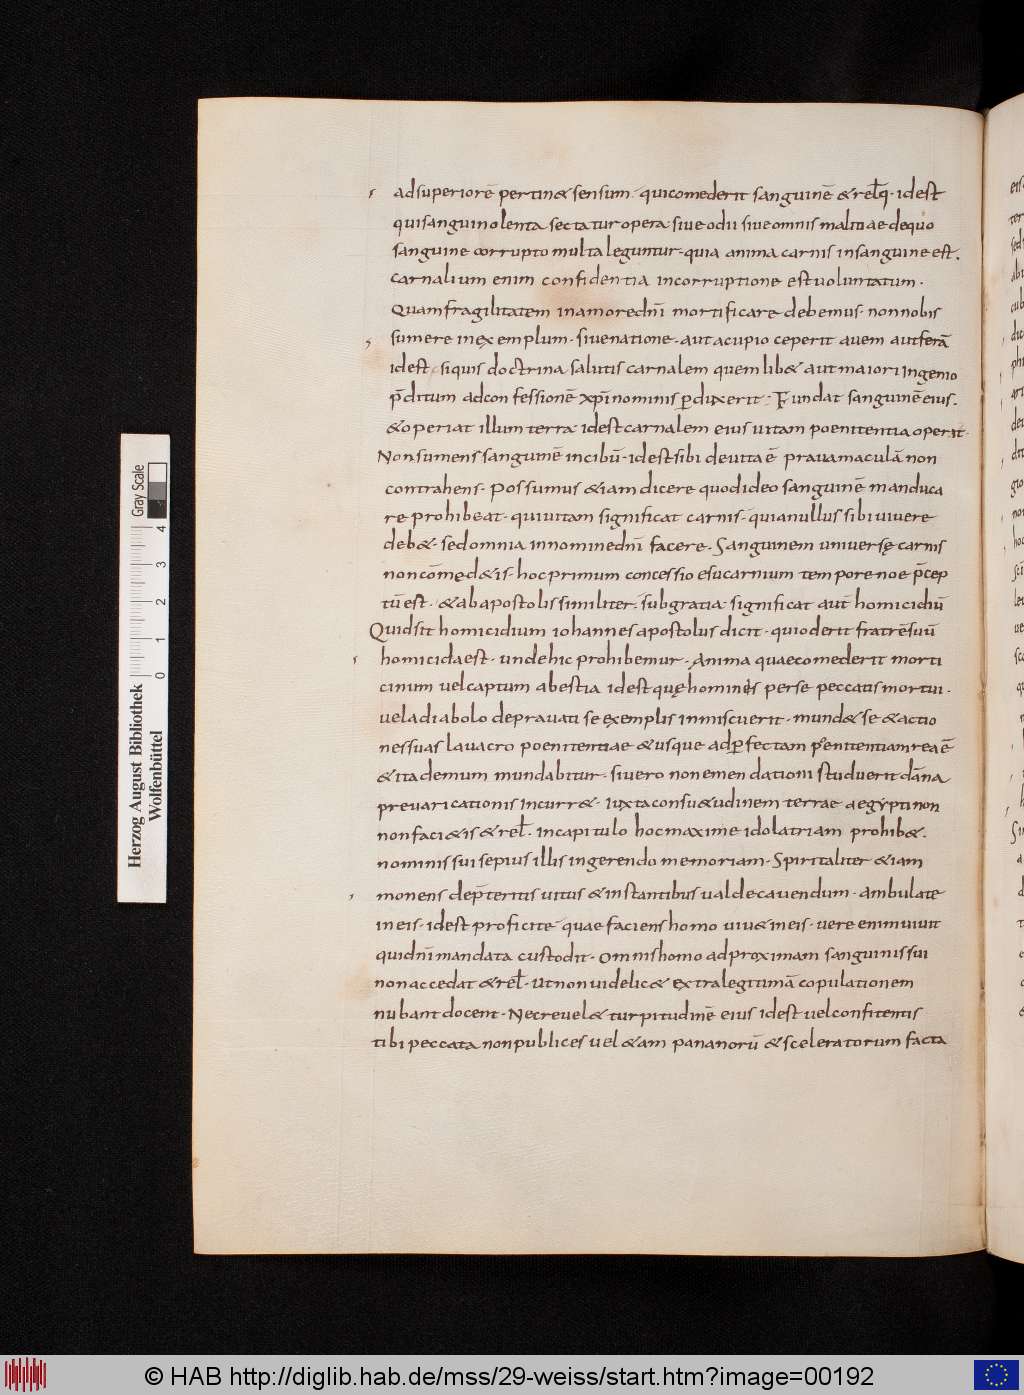 ad superiorē pertin& sensum · qui comederit sanguinē & rel̄q · idest
qui sanguinolenta sectatur opera · siue odii siue omnis malitiae · de quo
sanguine corrupto multa leguntur · quia anima carnis in sanguine est ·
carnalium enim confidentia in corruptione est uoluntatum ·
Quam fragilitatem in amore dn̄i mortificare debemus · non nobis
sumere in exemplum · siue natione · aut acupio ceperit auem aut ferā
idest siquis doctrina salutis carnalem quemlib& aut maiori ingenio
p̄ditum ad confessionē xp̄i nominis ꝑduxerit · Fundat sanguinē eius ·
& operiat illum terra idest carnalem eius uitam poenitentia operiat ·
Non sumens sanguinē in cibū · idest sibi de uita ē praua maculā non
contrahens · Possumus & iam dicere quod ideo sanguinē manduca
re prohibeat · qui uitam significat carnis · quia nullus sibi uiuere
deb& · sed omnia in nomine dn̄i facere · Sanguinem uniuersę carnis
non comed&is · hoc primum concessio esu carnium tempore noe p̄cep
tū est · & ab apostolis similiter · sub gratia significat aut homicidiū
Quid sit homicidium iohannes apostolus dicit · qui oderit fratrē suū
homicida est · unde hic prohibemur · Anima quae comederit morti
cinum uel captum a bestia idest quę homines per se peccatis mortui ·
uel a diabolo deprauati se exemplis inmiscuerit · mund& se & actio
nes suas lauacro poenitentiae & usque ad ꝑfectam penitentiam rea ē
& ita demum mundabitur · si uero non emendationi studuerit dāna
preuaricationis incurr& · Iuxta consu&udinem terrae aegypti non
non faci&is & rel̄ · in capitulo hoc maxime idolatriam prohib& ·
nominis sui sepius illis ingerendo memoriam · Spiritaliter & iam
monens de p̄teritis uitiis & instantibus ualde cauendum · ambulate
in eis · idest proficite quae faciens homo uiu& in eis · uere enim uiuit
qui dn̄i mandata custodit · omnis homo ad proximam sanguinis sui
non accedat & rel̄ · ut non uidelic& extra legitimā copulationem
nubant docent · Nec reuel& turpitudinē eius idest uel confitentis
tibi peccata non publices uel &iam pananorū & sceleratorum facta
Herzog August Bibliothek
Wolfenbüttel
Gray Scale
0 1 2 3 4
© HAB http://diglib.hab.de/mss/29-weiss/start.htm?image=00192